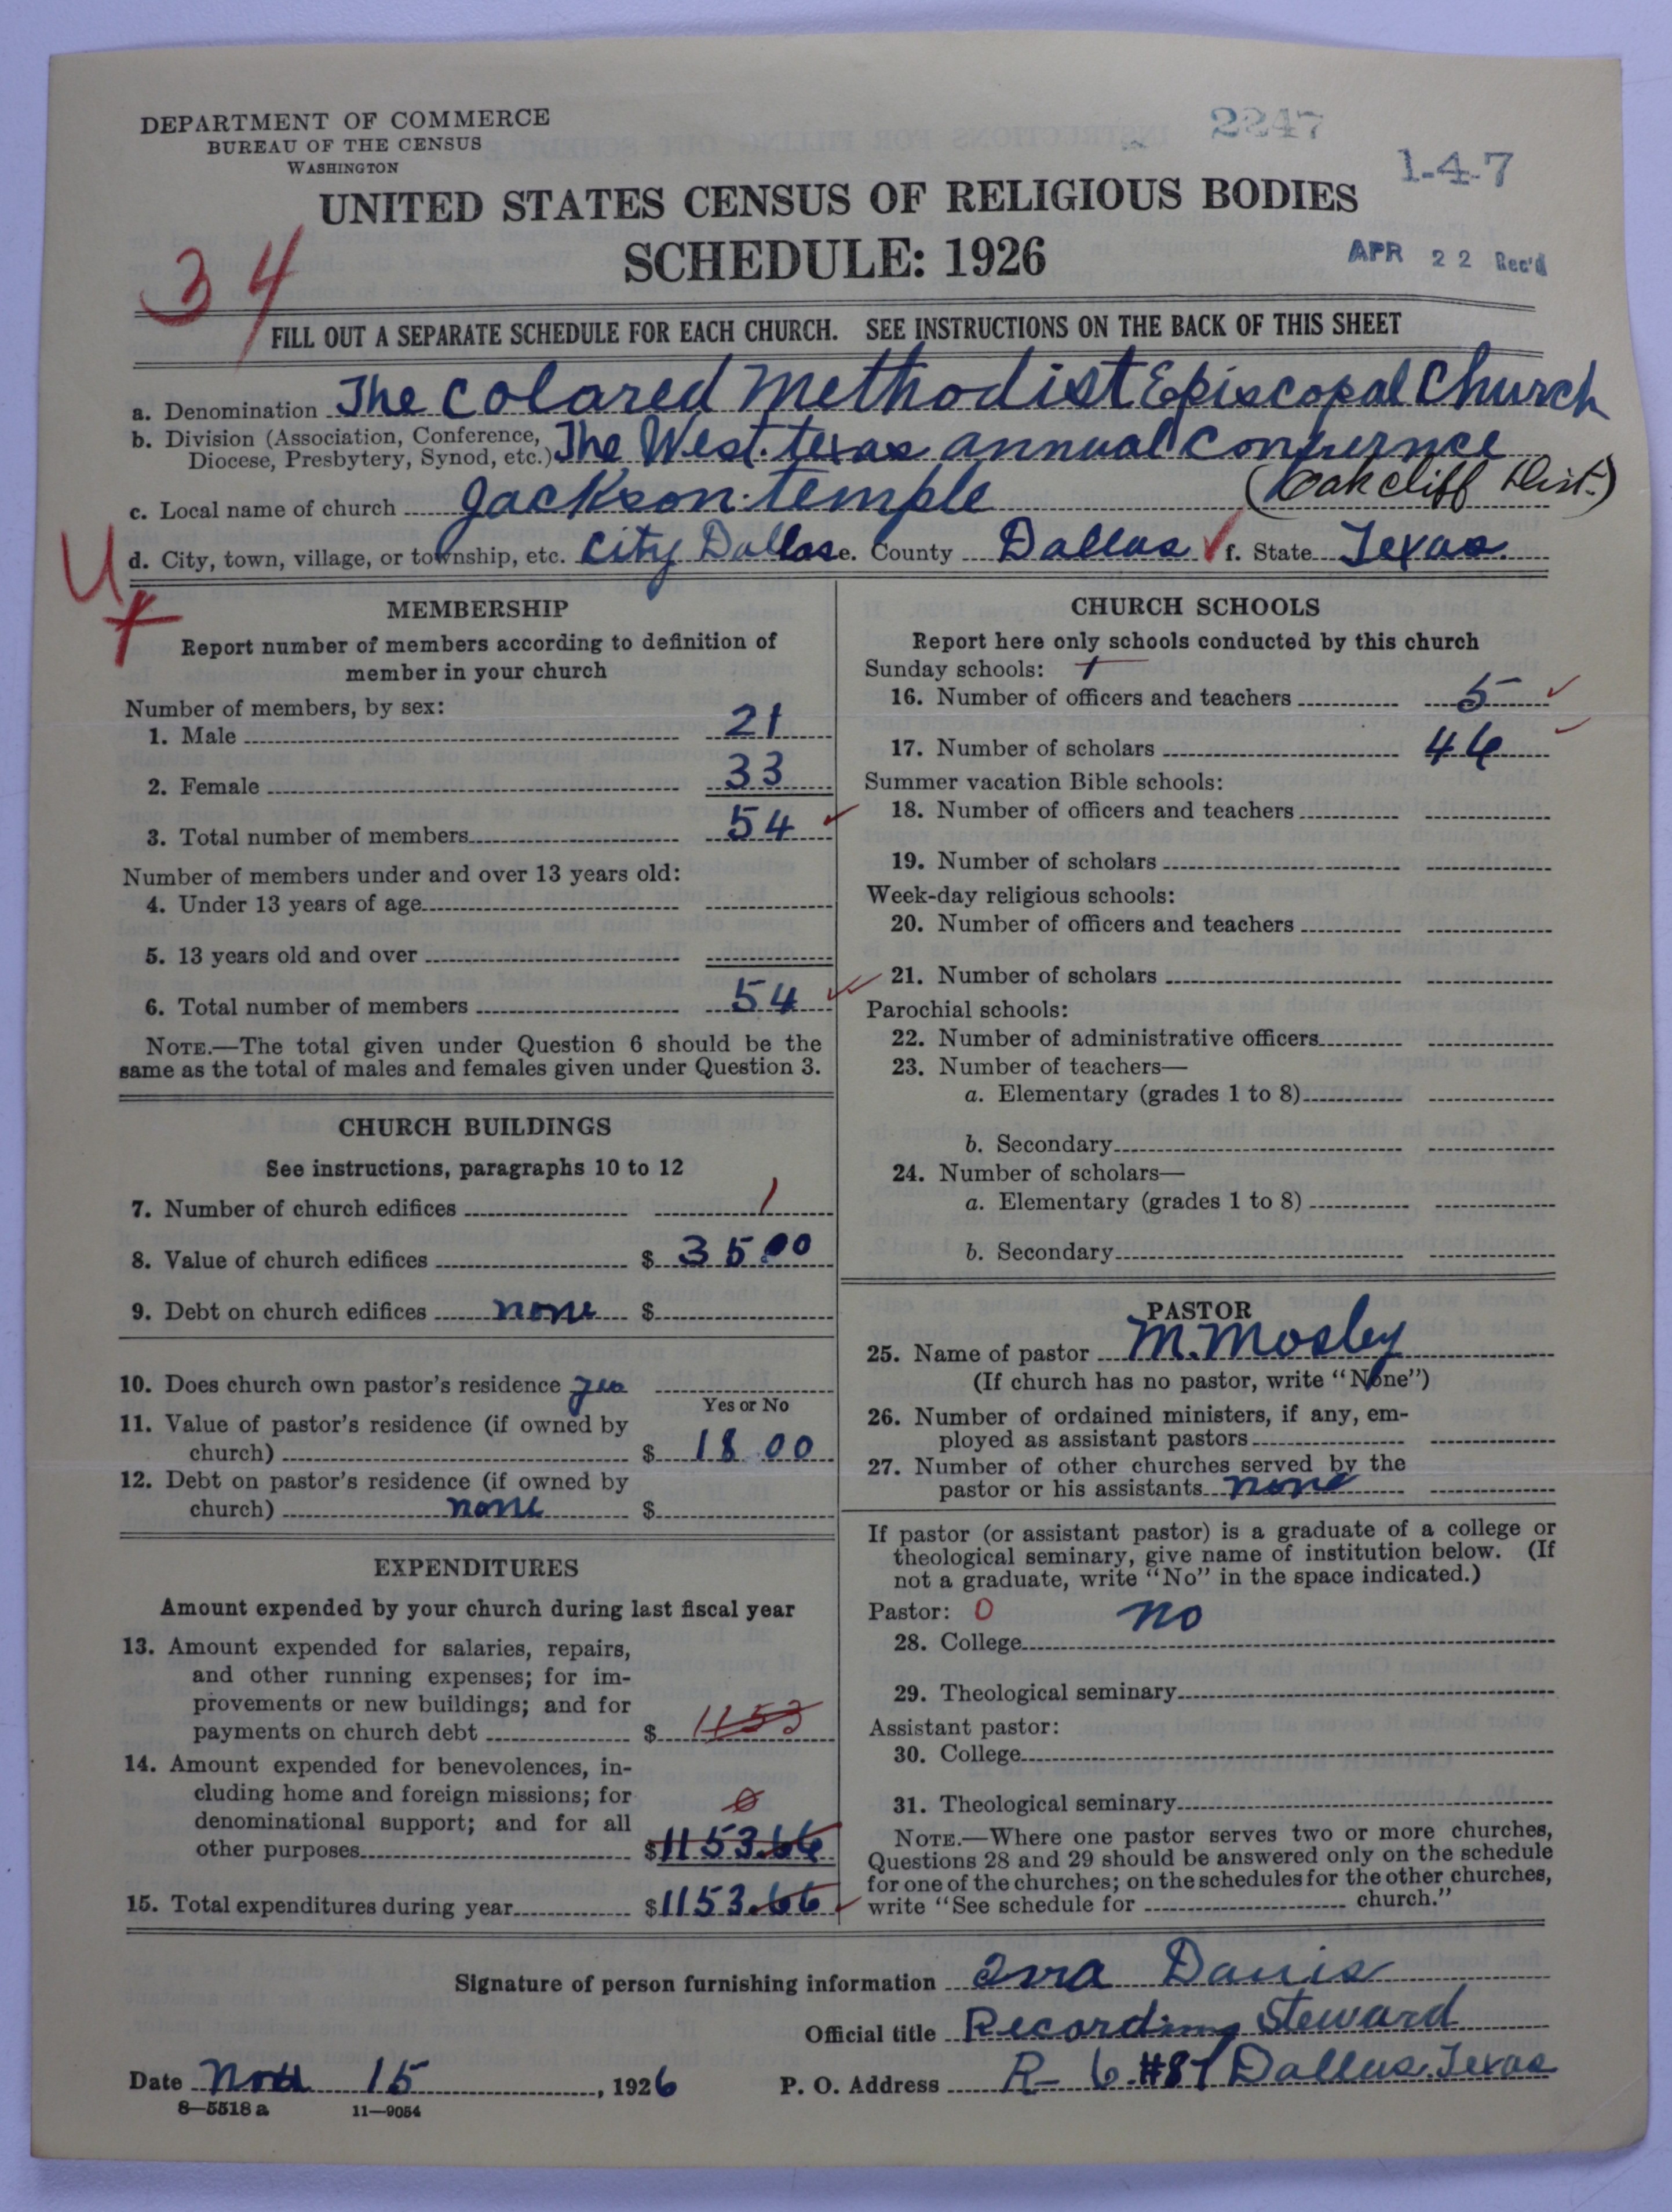 DEPARTMENT OF COMMERCE
BUREAU OF THE CENSUS
WASHINGTON
2247
1-4-7
UNITED STATES CENSUS OF RELIGIOUS BODIES
SCHEDULE: 1926
APR 22 Rec'd
34
FILL OUT A SEPARATE SCHEDULE FOR EACH CHURCH. SEE INSTRUCTIONS ON THE BACK OF THIS SHEET
a. Denomination The Colared Methodist Episcopal Church
b. Division (Association, Conference, Diocese, Presbytery, Synod, etc.) The West. texas annual Confernce
c. Local name of church Jackson temple (Oak cliff Dist.)
U d. City, town, village, or township, etc. City Dallas e. County Dallas ✓ f. State Texas.
MEMBERSHIP
Report number of members according to definition of
member in your church
Number of members, by sex:
1. Male 21
2. Female 33
3. Total number of members 54 ✓
Number of members under and over 13 years old:
4. Under 13 years of age
5. 13 years old and over
6. Total number of members 54 ✓✓
NOTE.—The total given under Question 6 should be the
same as the total of males and females given under Question 3.
CHURCH BUILDINGS
See instructions, paragraphs 10 to 12
7. Number of church edifices 1
8. Value of church edifices $ 35.00
9. Debt on church edifices none $
10. Does church own pastor's residence yes
Yes or No
11. Value of pastor's residence (if owned by
church) $ 18 00
12. Debt on pastor's residence (if owned by
church) none $
EXPENDITURES
Amount expended by your church during last fiscal year
13. Amount expended for salaries, repairs,
and other running expenses; for im-
provements or new buildings; and for
payments on church debt $ 1153
14. Amount expended for benevolences, in-
cluding home and foreign missions; for
denominational support; and for all
other purposes $1153.66
15. Total expenditures during year $1153.66 ✓
CHURCH SCHOOLS
Report here only schools conducted by this church
Sunday schools: 1
16. Number of officers and teachers 5 ✓
17. Number of scholars 46 ✓
Summer vacation Bible schools:
18. Number of officers and teachers
19. Number of scholars
Week-day religious schools:
20. Number of officers and teachers
21. Number of scholars
Parochial schools:
22. Number of administrative officers
23. Number of teachers—
a. Elementary (grades 1 to 8)
b. Secondary
24. Number of scholars—
a. Elementary (grades 1 to 8)
b. Secondary
PASTOR
25. Name of pastor M. Mosley
(If church has no pastor, write "None")
26. Number of ordained ministers, if any, em-
ployed as assistant pastors
27. Number of other churches served by the
pastor or his assistants none
If pastor (or assistant pastor) is a graduate of a college or
theological seminary, give name of institution below. (If
not a graduate, write "No" in the space indicated.)
Pastor: 0 no
28. College
29. Theological seminary
Assistant pastor:
30. College
31. Theological seminary
NOTE.—Where one pastor serves two or more churches,
Questions 28 and 29 should be answered only on the schedule
for one of the churches; on the schedules for the other churches,
write "See schedule for church."
Signature of person furnishing information Ivra Davis
Official title Recording Steward
Date Nov 15, 1926 P. O. Address R- 6 #87 Dallas. Texas
8—5518 a 11—9054